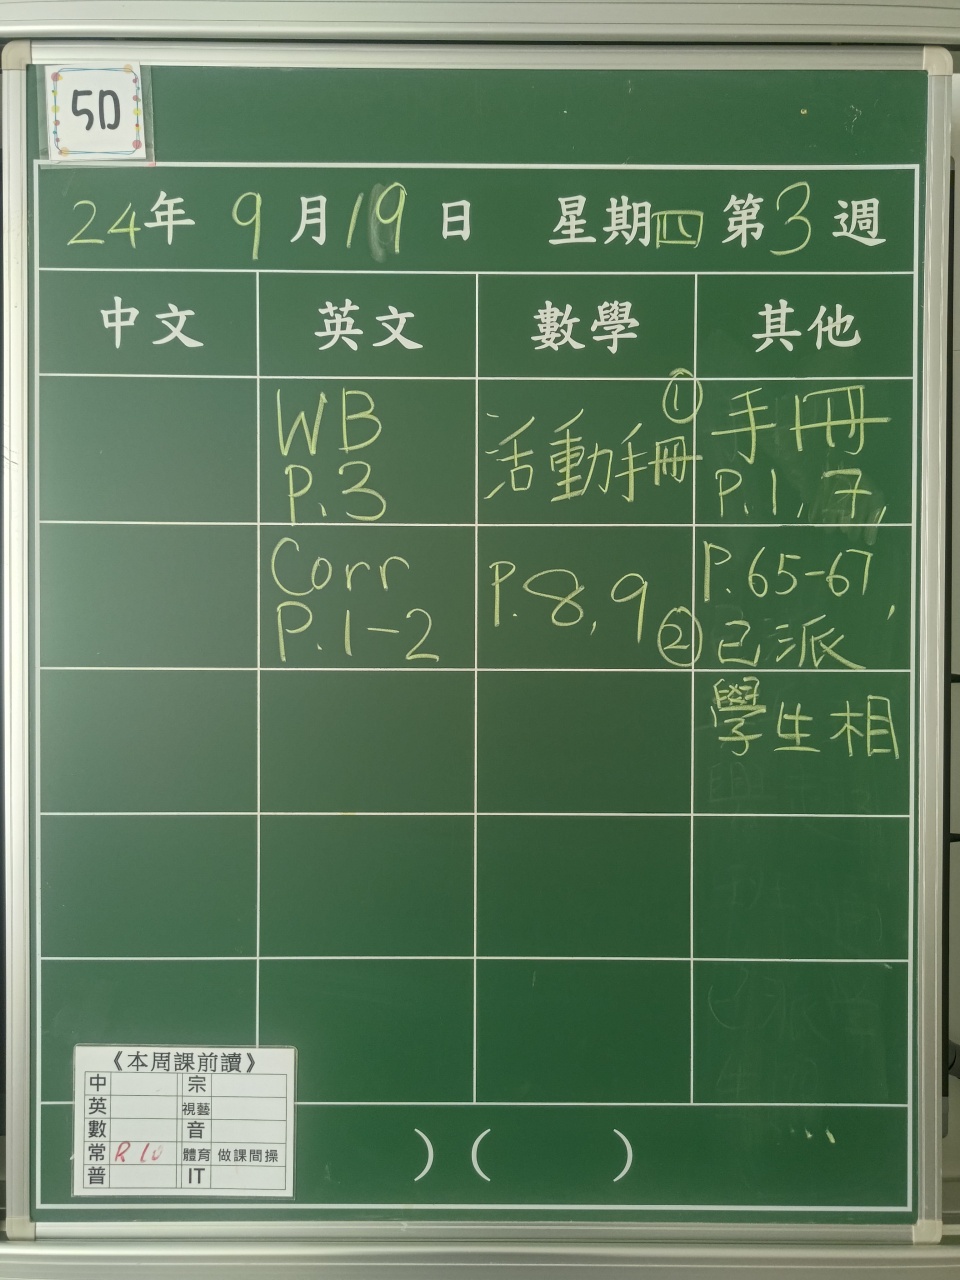 5D
24年9月19日 星期四 第3週
中文 英文 數學 其他
WB
P.3
Corr
P.1-2
活動手冊
P.8,9
①手冊
P.1,7,
P.65-67,
②已派
學生相
《本周課前讀》
中 宗
英 視藝
數 音
常 體育 做課間操
普 IT
( )( )